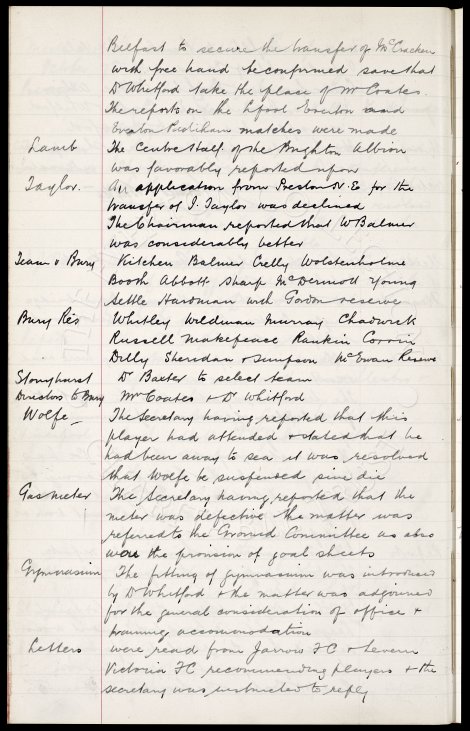 Belfast to secure the transfer of McCracken
with free hand be confirmed save that
Dr Whitford take the place of Mr Coates.
The reports on the Lpool Everton and
Everton Padiham matches were made
Lamb The Centre half of the Brighton Albion
was favorably reported upon
Taylor. An application from Preston N. E. for the
transfer of J. Taylor was declined
The Chairman reported that W Balmer
was considerably better
Team v Bury Kitchen Balmer Crelly Wolstenholme
Booth Abbott Sharp McDermott Young
Settle Hardman with Gordon reserve
Bury Res Whitley Wildman Murray Chadwick
Russell Makepeace Rankin Corrin
Dilly Sheridan & Simpson McEwan Reserve
Stonyhurst Dr Baxter to select team
Directors to Bury Mr Coates & Dr Whitford
Wolfe The Secretary having reported that this
player had attended & stated that he
had been away to sea it was resolved
that Wolfe be suspended sine die
Gas meter The Secretary having reported that the
meter was defective the matter was
referred to the Ground Committee as also
were the provision of goal sheets
Gymnasium The fitting of gymnasium was introduced
by Dr Whitford & the matter was adjourned
for the general consideration of office &
training accomodation
Letters were read from Jarrow FC & Levern
Victoria FC recommending players & the
secretary was instructed to reply